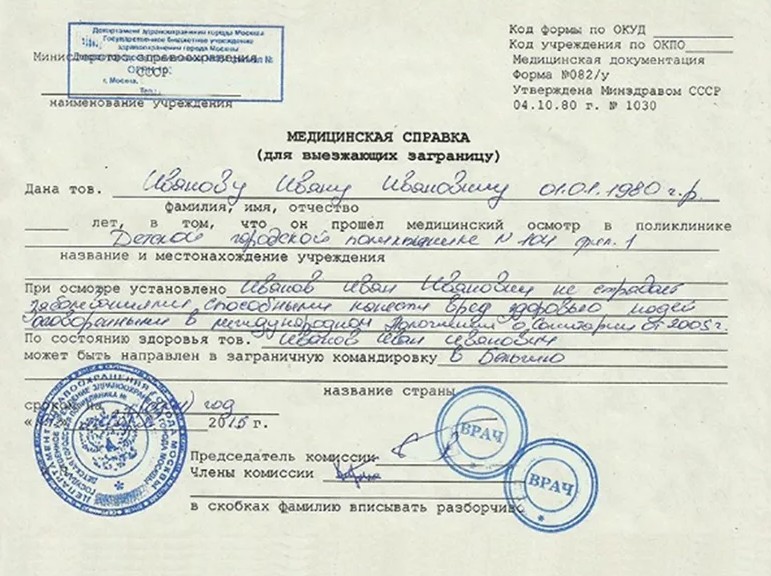 Департамент здравоохранения города Москвы
Государственное бюджетное учреждение
здравоохранения города Москвы
г. Москва,
Тел.:
Министерство здравоохранения
СССР
наименование учреждения
Код формы по ОКУД
Код учреждения по ОКПО
Медицинская документация
Форма №082/у
Утверждена Минздравом СССР
04.10.80 г. № 1030
МЕДИЦИНСКАЯ СПРАВКА
(для выезжающих заграницу)
Дана тов. Иванову Ивану Ивановичу 01.01.1980 г.р.
фамилия, имя, отчество
лет, в том, что он прошел медицинский осмотр в поликлинике
Детской городской поликлинике N 104 фил. 1
название и местонахождение учреждения
При осмотре установлено Иванов Иван Иванович не страдает
заболеваниями способными нанести вред здоровью людей
в международном о Санитарии от 2005 г.
По состоянию здоровья тов. Иванов Иван Иванович
может быть направлен в заграничную командировку в Бельгию
название страны
сроком на год
2015 г.
Председатель комиссии
Члены комиссии
в скобках фамилию вписывать разборчиво
ВРАЧ
ВРАЧ